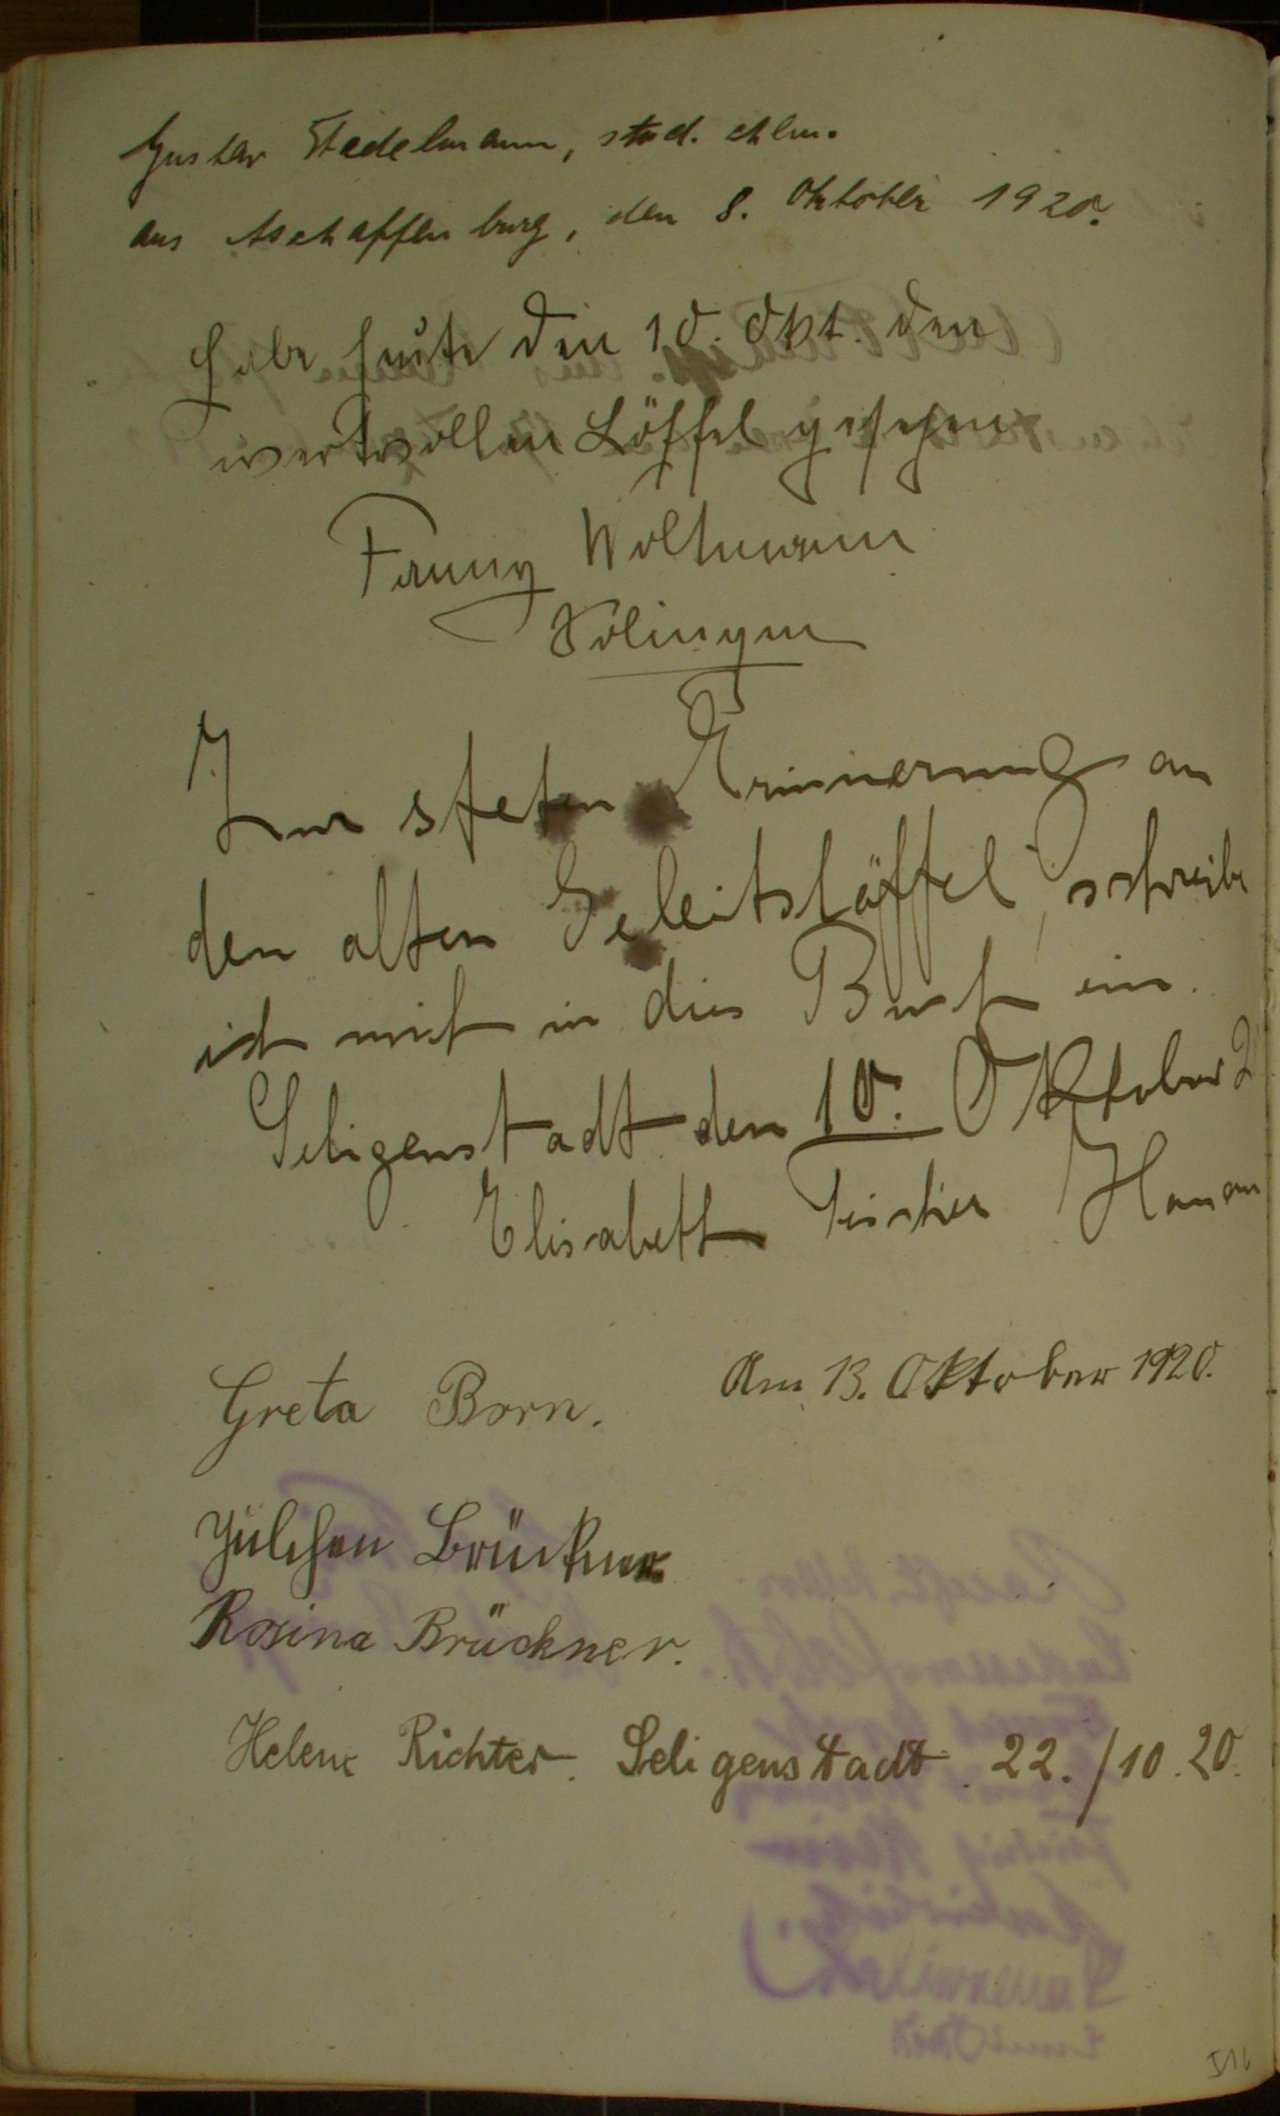 Gustav Stadelmann, stud. chem.
aus Aschaffenburg, den 8. Oktober 1920.
Habe heute den 10. Okt. den
wertvollen Löffel gesehen
Fanny Woltmann
Solingen
Zur steten Erinnerung an
den alten Geleitslöffel, schreibe
ich mich in dies Buch ein.
Seligenstadt den 10. Oktober 2
Elisabeth Fischer Hanau
Am 13. Oktober 1920.
Greta Born.
Julchen Brückner
Rosina Brückner.
Helene Richter. Seligenstadt. 22./10.20.